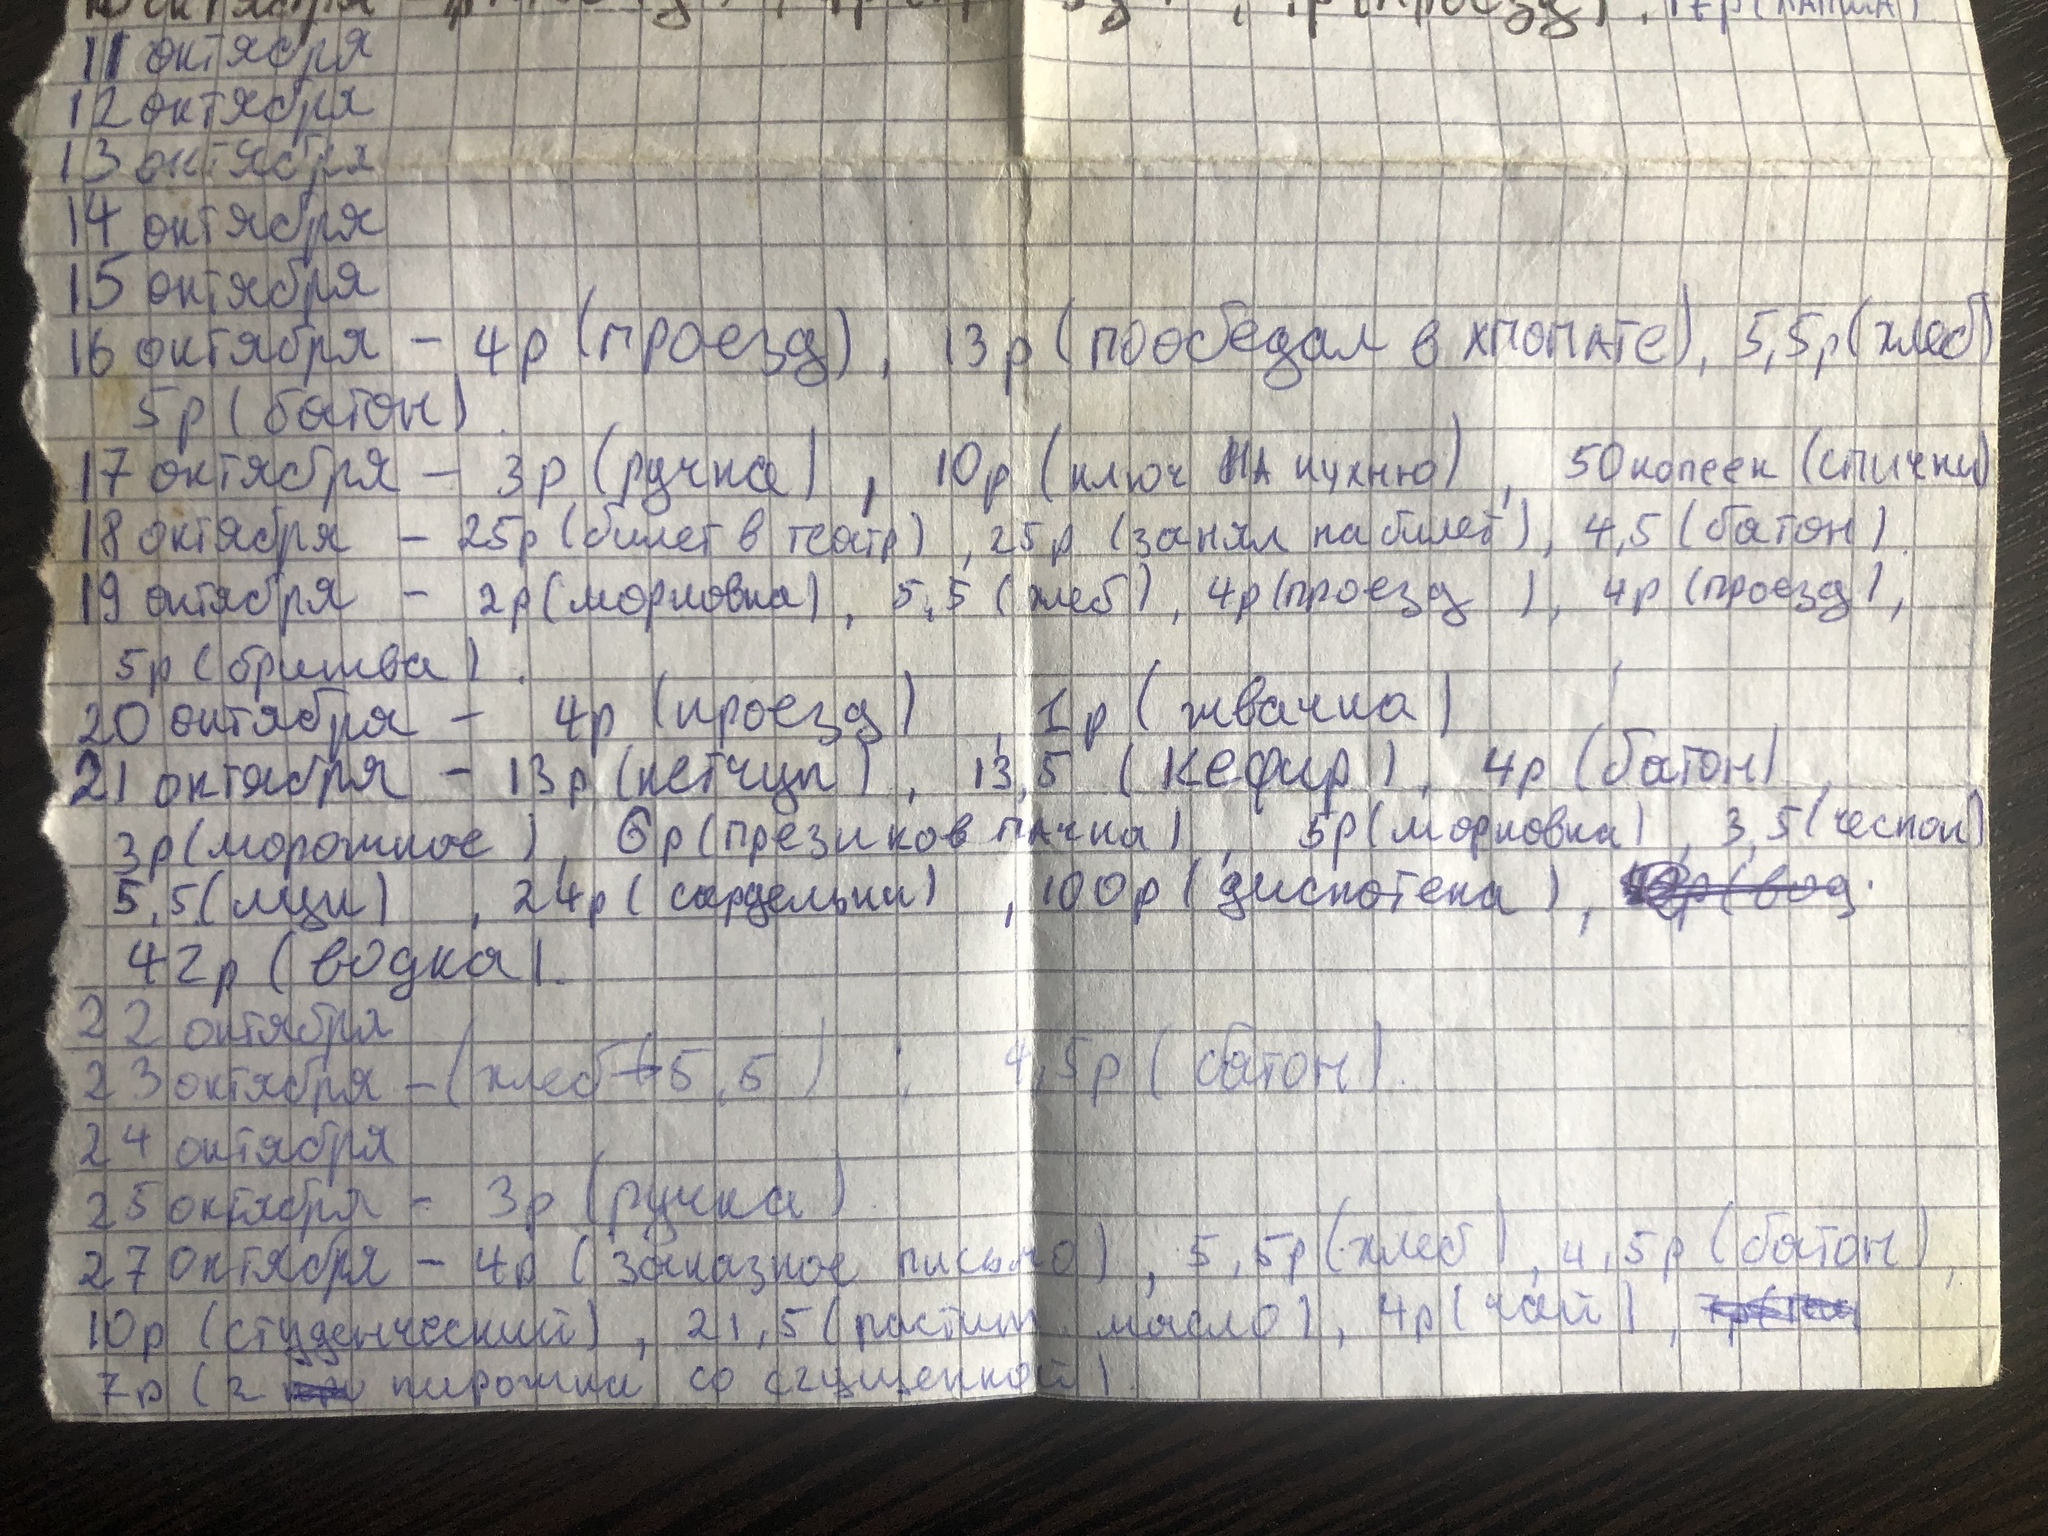 10 октября
11 октября
12 октября
13 октября
14 октября
15 октября
16 октября – 4р (проезд), 13р (пообедал в хпопате), 5,5р (хлеб)
5р (батон).
17 октября – 3р (ручка), 10р (ключ на кухню), 50 копеек (спички)
18 октября – 25р (билет в театр), 25р (занял на билет), 4,5 (батон).
19 октября – 2р (морковка), 5,5 (хлеб), 4р (проезд), 4р (проезд),
5р (бритва).
20 октября – 4р (проезд), 1р (жвачка)
21 октября – 13р (кетчуп), 13,5 (кефир), 4р (батон),
3р (морожное), 6р (презиков пачка), 5р (морковка), 3,5 (чеснок)
5,5 (яйцы), 24р (сардельки), 100р (дискотека),
42р (водка).
22 октября
23 октября – (хлеб 5,5), 4,5р (батон).
24 октября
25 октября – 3р (ручка).
27 октября – 4р (заказное письмо), 5,5р (хлеб), 4,5р (батон),
10р (студенческий), 21,5 (растит. масло), 4р (чай),
7р (2 пирожки со сгущенкой).